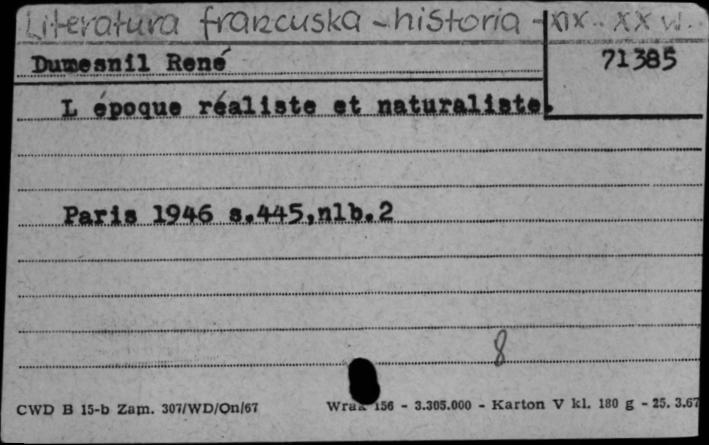 Literatura francuska - historia - XIX - XX w.
Dumesnil René
71385
L époque réaliste et naturaliste.
Paris 1946 s.445,nlb.2
8
CWD B 15-b Zam. 307/WD/On/67 156 - 3.305.000 - Karton V kl. 180 g - 25. 3.67